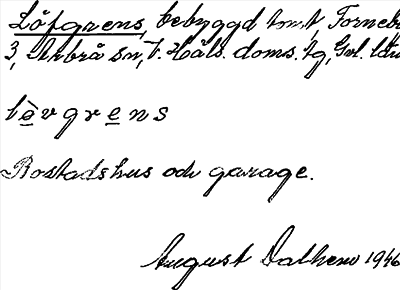 Löfgrens, bebyggd tomt, Forneby
3, Arbrå sn, V. Häls. doms. tg, Gvl. län
lèvgrens
Bostadshus och garage.
August Dalhem 1946